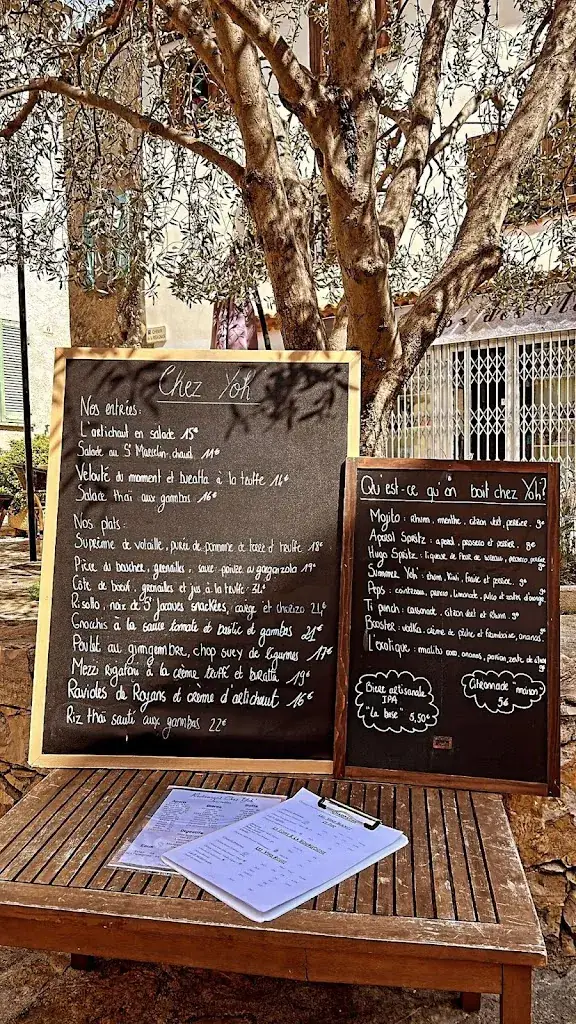 Chez Yoh
Nos entrées :
L'artichaut en salade 15€
Salade au St Marcelin chaud 11€
Velouté du moment et buratta à la truffe 14€
Salade thaï aux gambas 16€
Nos plats :
Suprême de volaille, purée de pomme de terre et truffe 18€
Pièce du boucher, grenailles, sauce poivre ou gorgonzola 19€
Côte de boeuf, grenailles et jus à la truffe
Risotto, noix de St Jacques snackées, asperge et chorizo 24€
Gnocchis à la sauce tomate et basilic et gambas 21€
Poulet au gingembre, chop suey de légumes 17€
Mezzi Rigatoni à la crème truffe et buratta 19€
Ravioles de Royans et crème d'artichaut 16€
Riz thaï sauté aux gambas 22€
Qu'est-ce qu'on boit chez Yoh?
Mojito : Rhum, menthe, citron vert, perrier. 9€
Aperol Spritz : aperol, proseco et perrier. 9€
Hugo Spritz : liqueur de fleur de sureau, proseco, perrier
Summer Yoh : rhum, kiwi, fraise et perrier. 9€
Peps : cointreau, limonade, pulco et zestes d'orange
Ti punch : cassonade, citron vert et Rhum. 9€
Booster : vodka, crème de pêche et framboise, ananas.
L'exotique : malibu coco, ananas, passion, zeste de
Bière artisanale
IPA
"la bose" 5,50€
Citronnade "maison"
5€